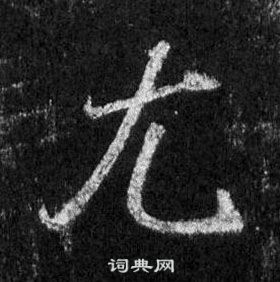 尢
词典网